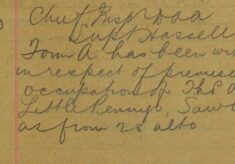 Chief Insp DDA
Supt Hassell
Form A has been
in respect of premises
occupation of Thos
Little Pennys,
as from 28 ulto